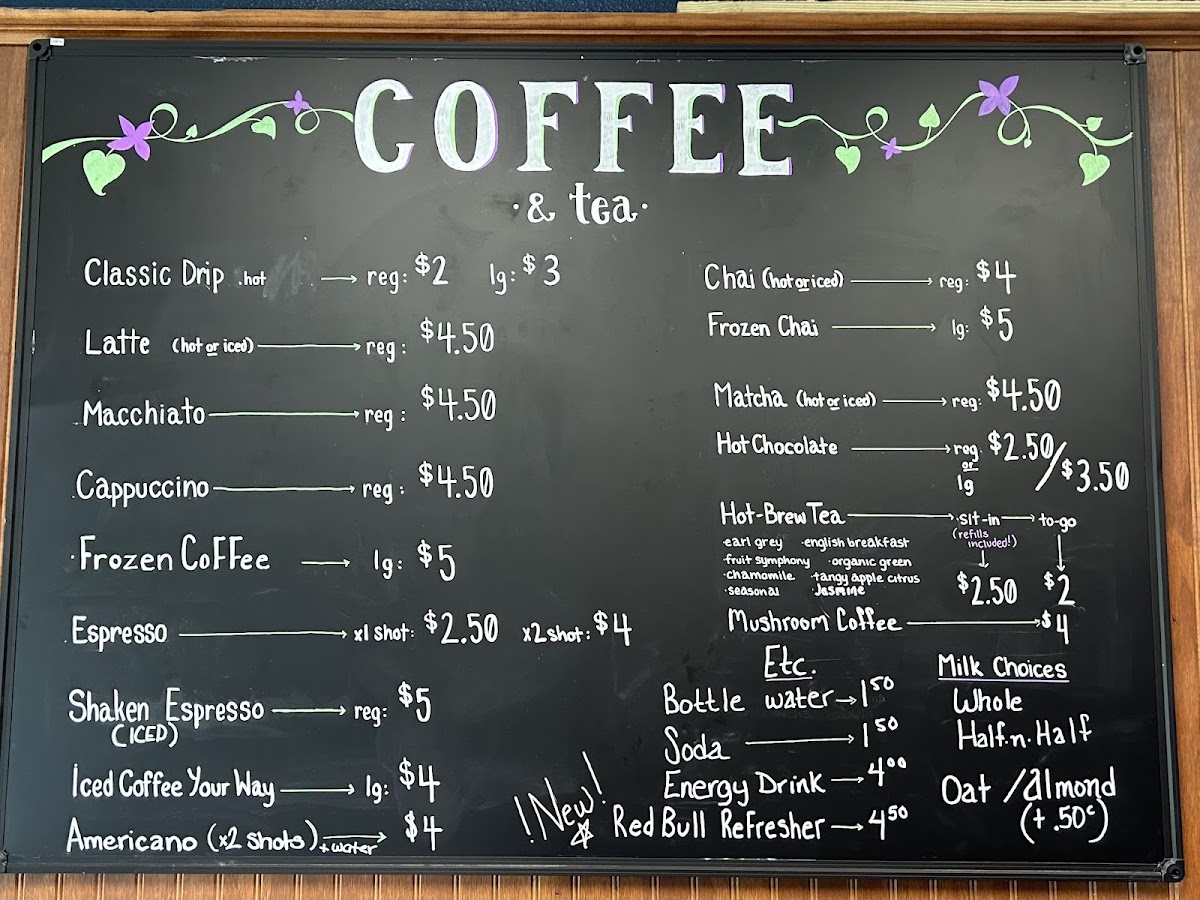 COFFEE
& tea
Classic Drip hot → reg: $2 lg: $3
Latte (hot or iced) → reg: $4.50
Macchiato → reg: $4.50
Cappuccino → reg: $4.50
Frozen Coffee → lg: $5
Espresso → x1 shot: $2.50 x2 shot: $4
Shaken Espresso → reg: $5
(ICED)
Iced Coffee Your Way → lg: $4
Americano (x2 shots) + water → $4
Chai (hot or iced) → reg: $4
Frozen Chai → lg: $5
Matcha (hot or iced) → reg: $4.50
Hot Chocolate → reg. $2.50/
or
lg $3.50
Hot-Brew Tea → sit-in → to-go
(refills
included!)
·earl grey ·english breakfast
·fruit symphony ·organic green
·chamomile ·tangy apple citrus
·seasonal ·Jasmine
$2.50 $2
Mushroom Coffee → $4
Etc.
Bottle water → 1 50
Soda → 1 50
Energy Drink → 4 00
!New! Red Bull Refresher → 4 50
Milk Choices
Whole
Half.n.Half
Oat / almond
(+ .50c)